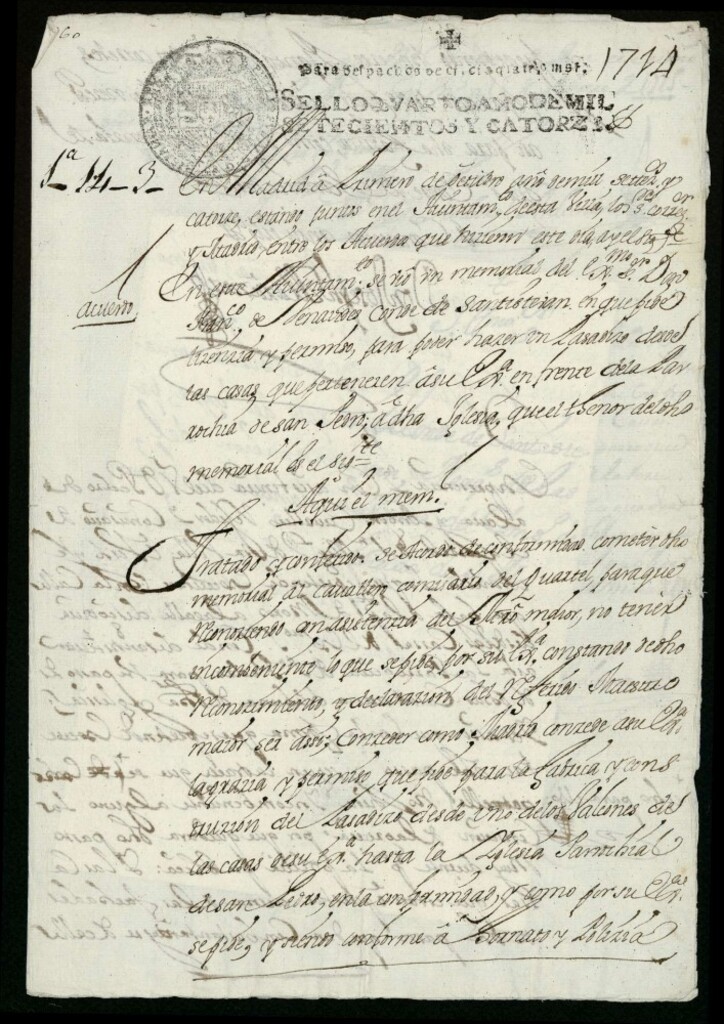 60
Para despachos de oficio quatro mrs. 1714
SELLO QVARTO AÑO DE MIL
SETECIENTOS Y CATORZE
1ª 14-3- En Madrid â Primero de otubre año de mill Settºs y
catorze, estando juntos en el Ayuntamtº desta Villa, los SSres Correxr
y Madrid, entre los Acuerdos que hizieron este dia, ay el sigte
acuerdo
En este Ayuntamtº se vió un memorial del Exmo Sr Dn
Francº de Benavides Conde de Santisteuan en que pide
lizenzia y permiso, para poder hazer un Pasadizo desde
las casas que pertenezen â su Exª. en frente de la Par
rochia de san Pedro, â dha Iglesia, que el thenor del dho
memorial es el sigte
Aqui el mem.l
Tratado y conferido se Acordó de conformidad cometer dho
memorial al cavallero comisario del Quartel, para que
reconoziendo con asistenzia del Maestro maior, no tener
inconbeniente lo que se pide por su Exª. constando de dho
Reconozimiento, y declarazion del Maestro
maior ser assi; Conzeder como Madrid conzede a su Exª
la grazia y permiso que pide para la fabrica y cons
truzion del Pasadizo desde uno de los balcones de
las casas de su Exª hasta la Yglesia Parrochial
de san Pedro, en la conformidad, y como por su Exª
se pide, y siendo conforme â Hornato y Polizia